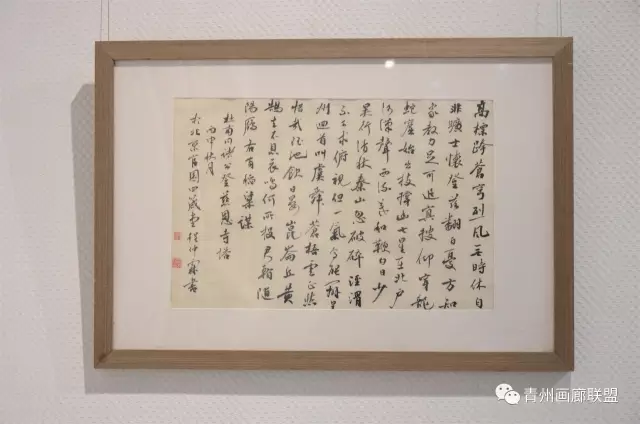 高標跨蒼穹烈風无時休自
非曠士懷登茲翻百憂方知
象教力足可追冥搜仰穿龍
蛇窟始出枝撐幽七星在北户
河漢聲西流羲和鞭白日少
昊行清秋秦山忽破碎涇渭
不可求俯視但一氣焉能辨皇
州迴首叫虞舜蒼梧雲正愁
惜哉瑤池飲日晏崑崙丘黄
鵠去不息哀鳴何所投君看隨
陽雁各有稻粱謀
杜甫同諸公登慈恩寺塔
丙申秋月
於北京官園四 堂 仲霖書
青州画廊联盟